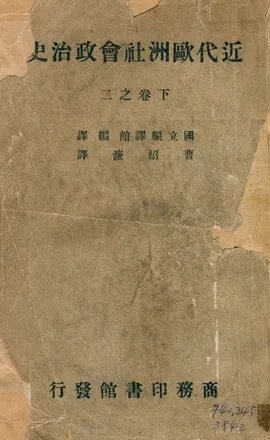 近代歐洲社會政治史
下卷之二
國立編譯館 編譯
曹紹濂 譯
商務印書館發行
740.245
3842